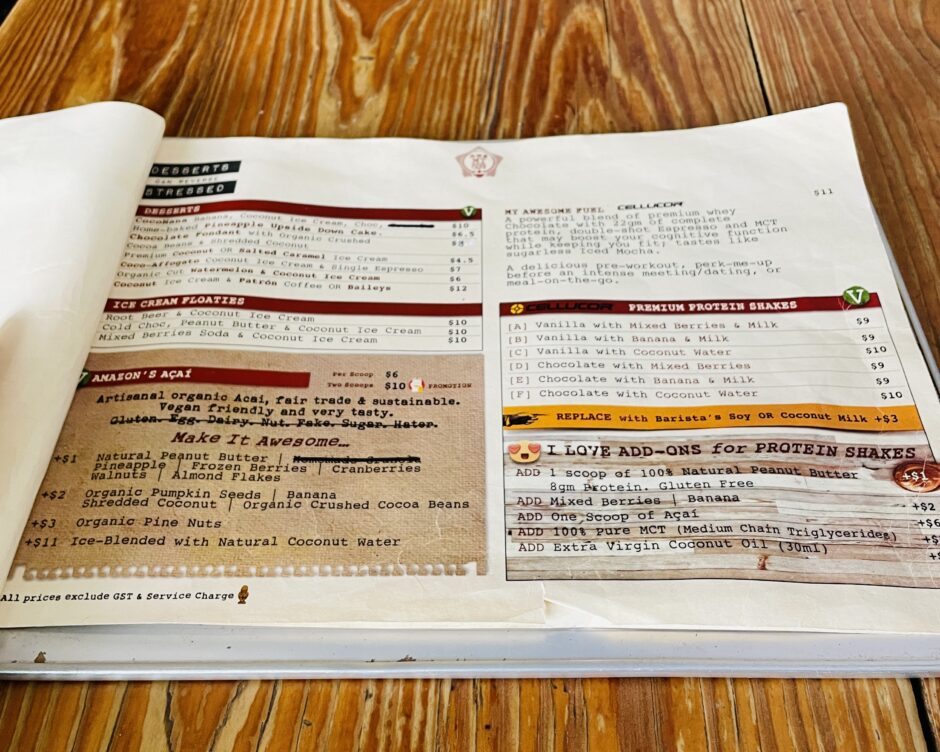 DESSERTS
CAN REVERSE
STRESSED
DESSERTS
CocoNana Banana, Coconut Ice Cream, Choc, $10
Home-baked Pineapple Upside Down Cake. $6.5
Chocolate Fondant with Organic Crushed
Cocoa Beans & Shredded Coconut
Premium Coconut OR Salted Caramel Ice Cream $4.5
Coco-Affogato Coconut Ice Cream & Single Espresso $7
Organic Cut Watermelon & Coconut Ice Cream $6
Coconut Ice Cream & Patrón Coffee OR Baileys $12
ICE CREAM FLOATIES
Root Beer & Coconut Ice Cream $10
Cold Choc, Peanut Butter & Coconut Ice Cream $10
Mixed Berries Soda & Coconut Ice Cream $10
V AMAZON'S AÇAÍ
Per Scoop $6
Two Scoops $10 PROMOTION
Artisanal organic Acai, fair trade & sustainable.
Vegan friendly and very tasty.
Gluten. Egg. Dairy. Nut. Fake. Sugar. Hater.
Make It Awesome…
+$1 Natural Peanut Butter |
Pineapple | Frozen Berries | Cranberries
Walnuts | Almond Flakes
+$2 Organic Pumpkin Seeds | Banana
Shredded Coconut | Organic Crushed Cocoa Beans
+$3 Organic Pine Nuts
+$11 Ice-Blended with Natural Coconut Water
All prices exclude GST & Service Charge
$11
MY AWESOME FUEL CELLUCOR
A powerful blend of premium whey
Chocolate with 22gm of complete
protein, double-shot Espresso and MCT
that may boost your cognitive function
while keeping you fit; tastes like
sugarless Iced Mocha.
A delicious pre-workout, perk-me-up
before an intense meeting/dating, or
meal-on-the-go.
CELLUCOR PREMIUM PROTEIN SHAKES V
[A] Vanilla with Mixed Berries & Milk $9
[B] Vanilla with Banana & Milk $9
[C] Vanilla with Coconut Water $10
[D] Chocolate with Mixed Berries $9
[E] Chocolate with Banana & Milk $9
[F] Chocolate with Coconut Water $10
REPLACE with Barista's Soy OR Coconut Milk +$3
I LOVE ADD-ONS for PROTEIN SHAKES
ADD 1 scoop of 100% Natural Peanut Butter +$1
8gm Protein. Gluten Free
ADD Mixed Berries | Banana +$2
ADD One Scoop of Açaí +$6
ADD 100% Pure MCT (Medium Chain Triglycerides)
ADD Extra Virgin Coconut Oil (30ml)